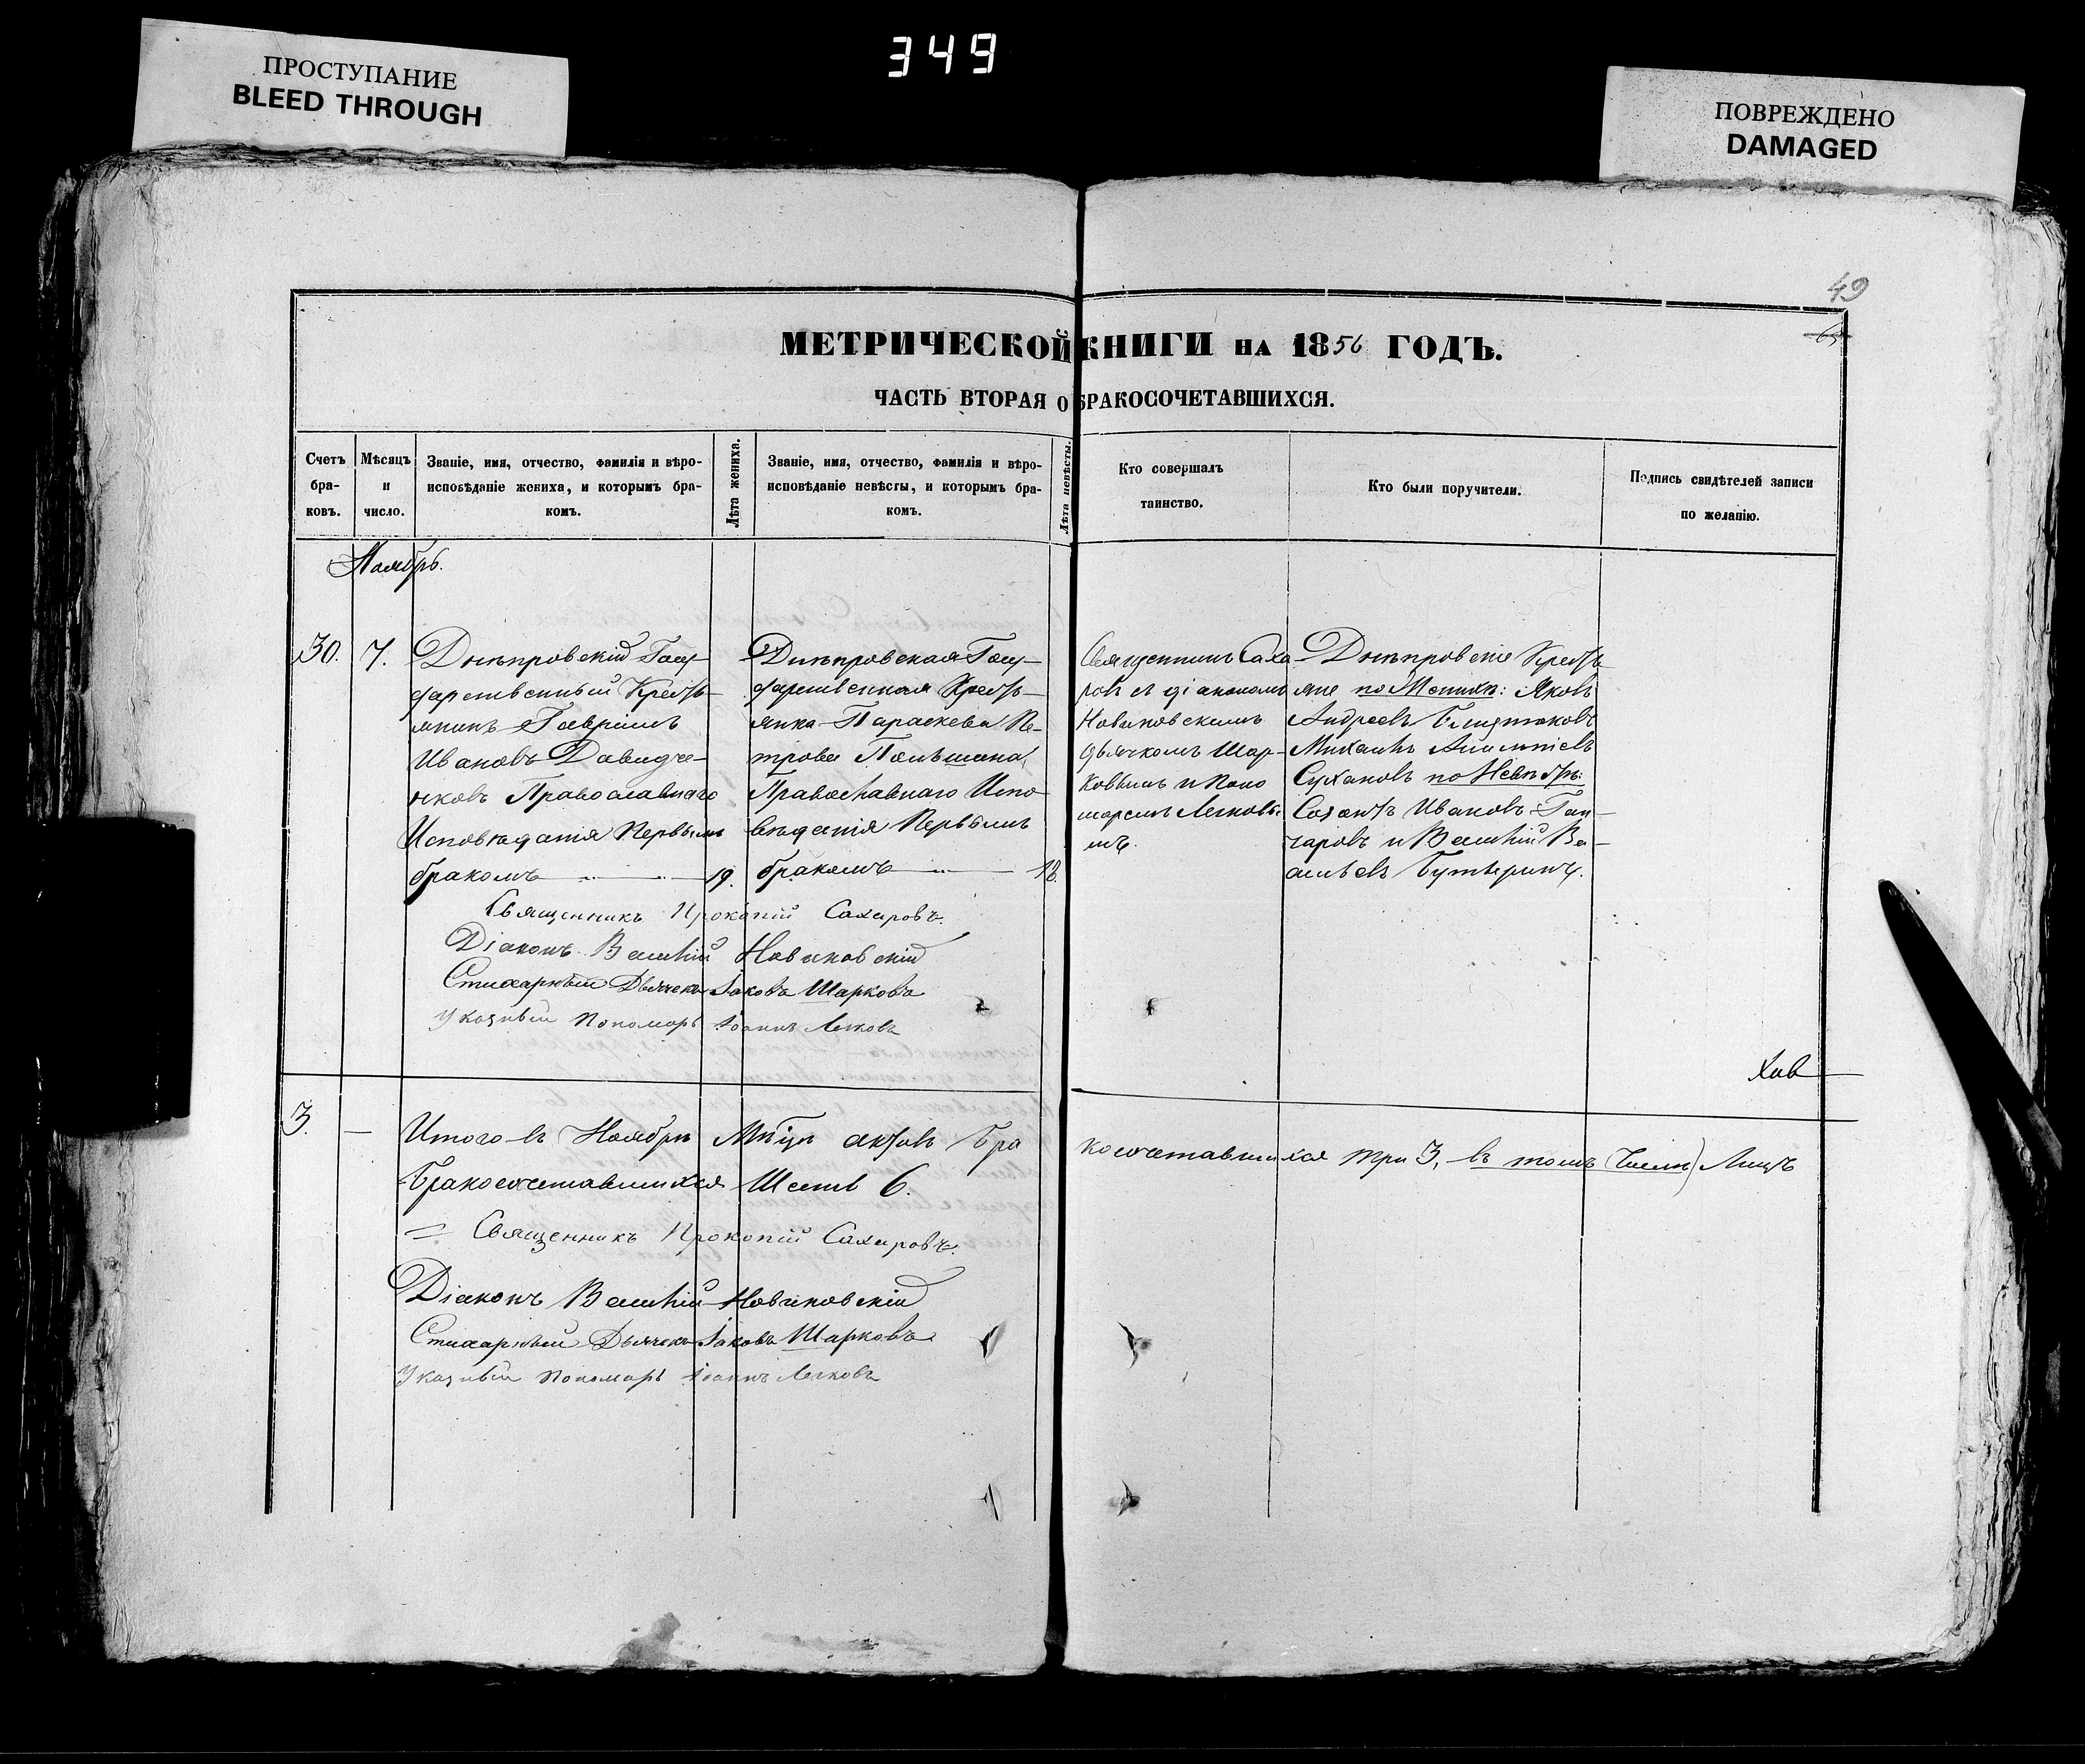 ПРОСТУПАНИЕ
BLEED THROUGH
349
ПОВРЕЖДЕНО
DAMAGED
49
МЕТРИЧЕСКОЙ КНИГИ НА 1856 ГОДЪ.
ЧАСТЬ ВТОРАЯ О БРАКОСОЧЕТАВШИХСЯ.
Счетъ
бра-
ковъ.
Мѣсяцъ
и
число.
Званіе, имя, отчество, фамилія и вѣро-
исповѣданіе жениха, и которымъ бра-
комъ.
Лѣта жениха.
Званіе, имя, отчество, фамилія и вѣро-
исповѣданіе невѣсты, и которымъ бра-
комъ.
Лѣта невѣсты.
Кто совершалъ
таинство.
Кто были поручители.
Подпись свидѣтелей записи
по желанію.
Ноябрь.
30.
7.
Днѣпровскій Госу-
дарственный Кресть-
янинъ Гавріилъ
Ивановъ Давидче-
нковъ Православнаго
Исповѣданія Первымъ
бракомъ
19.
Днѣпровская Госу-
дарственная Кресть-
янка Параскева Пе-
трова
Православнаго Испо-
вѣданія Первымъ
бракомъ
18.
Священникъ Саха
ровъ съ діакономъ
Новиковскимъ
дьячкомъ Шар-
ковымъ и Поно
маремъ Легковы
мъ.
Днѣпровскіе Кресть
яне по Женихѣ: Яковъ
Андреевъ
Михаилъ
Сухановъ по Невѣстѣ:
Созонтъ Ивановъ Гон-
чаровъ и Василій Ва-
сильевъ
Священникъ Прокопій Сахаровъ.
Діаконъ Василій Новиковскій
Стихарный Дьячекъ Іаковъ Шарковъ
Указный Пономарь Іоаннъ Легковъ
3.
Итого въ Ноябрѣ Мѣсяцѣ актовъ Бра
косочетавшихся три 3, въ томъ Числѣ Лицъ
Бракосочетавшихся Шесть 6.
Священникъ Прокопій Сахаровъ.
Діаконъ Василій Новиковскій
Стихарный Дьячекъ Іаковъ Шарковъ
Указный Пономарь Іоаннъ Легковъ